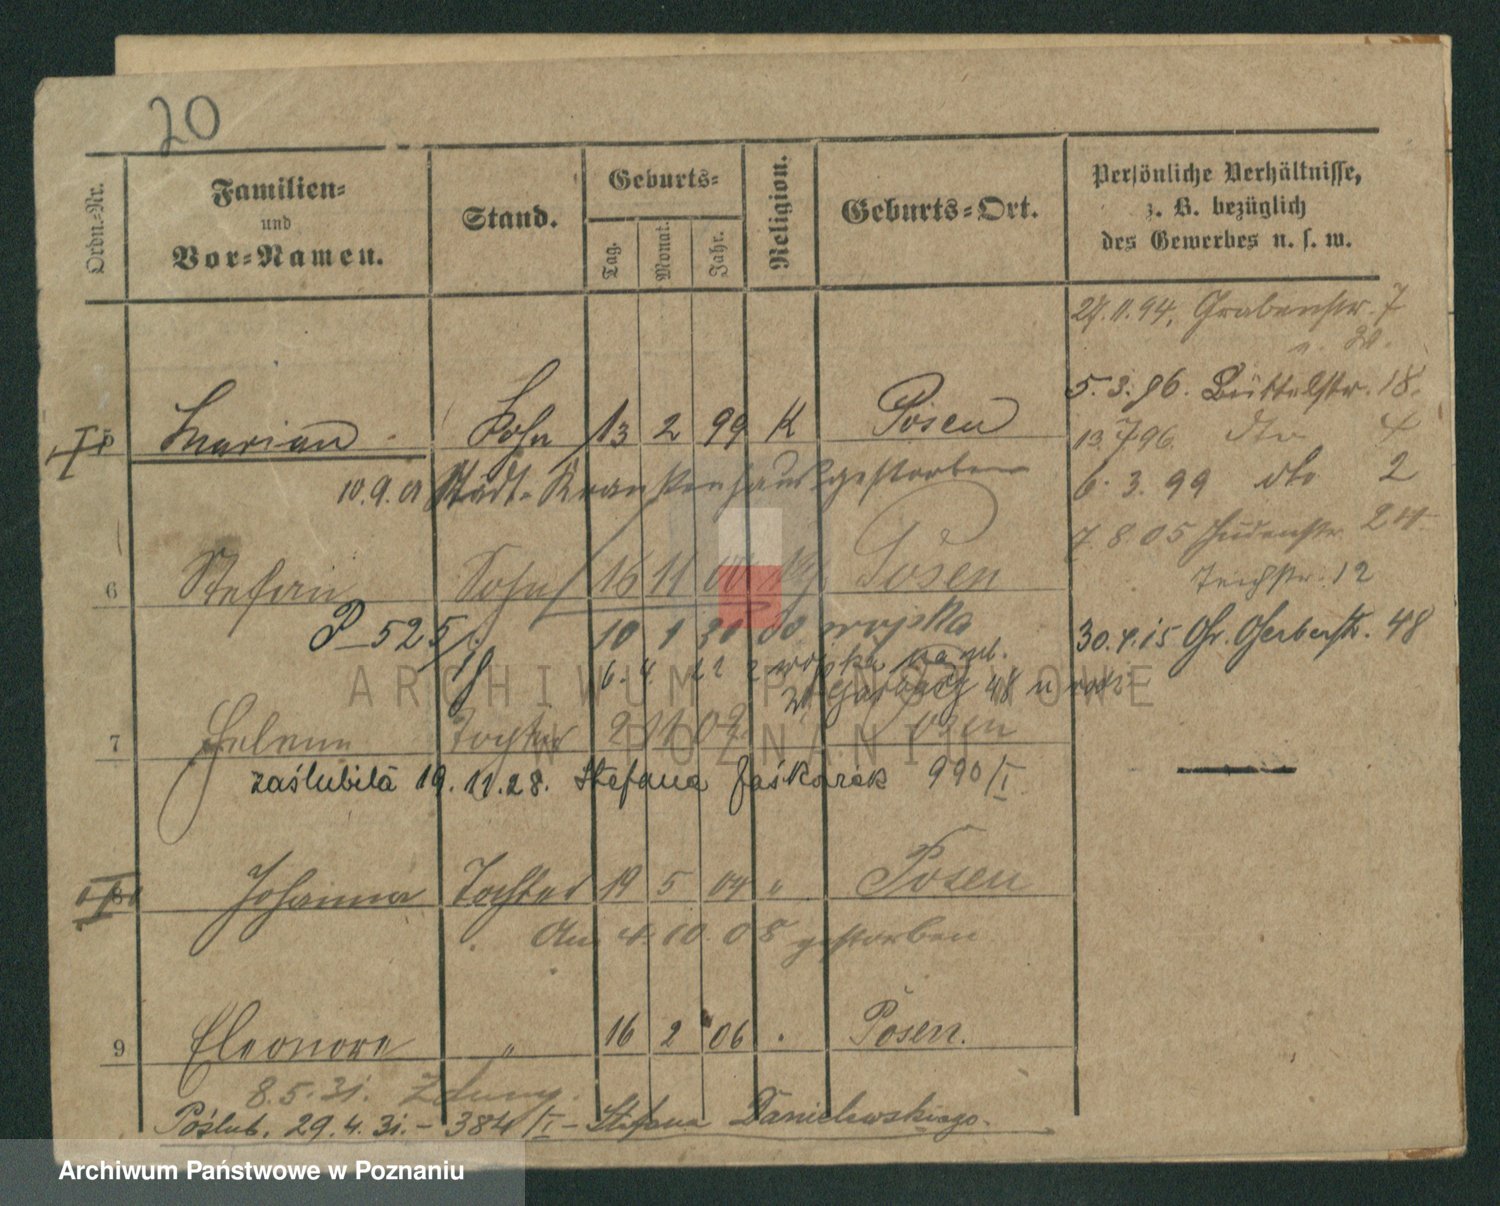 20
Ordn.-Nr.
Familien-
und
Vor-Namen.
Stand.
Geburts-
Tag.
Monat.
Jahr.
Religion.
Geburts-Ort.
Persönliche Verhältnisse,
z. B. bezüglich
des Gewerbes u. s. w.
27.11.94. Grabenstr. 7
5.3.96. Büttelstr. 18.
5 Marian Sohn 13 2 99 K Posen
13.7.96. dto 4
10.9.01 Städt. Krankenhaus gestorben
6.3.99 dto 2
7.8.05 Judenstr. 24
6 Stefan Sohn 16 11 00 Posen
Teichstr. 12
P–525/18 10 1 20 do wojska
30.4.15 Gr. Gerberstr. 48
6. 4. 22 z wojska
48
7 Helene Tochter 2 11 02 Posen
zaślubiła 19.11.28. Stefana Jaśkarek 990/I.
8 Johanna Tochter 19 5 04 " Posen
Am 4.10.08 gestorben
9 Eleonore " 16 2 06 " Posen.
8.5.31. Zduny.
Poślub. 29.4.31. – 384/I – Stefana Danielewskiego.
ARCHIWUM PAŃSTWOWE
W POZNANIU
Archiwum Państwowe w Poznaniu